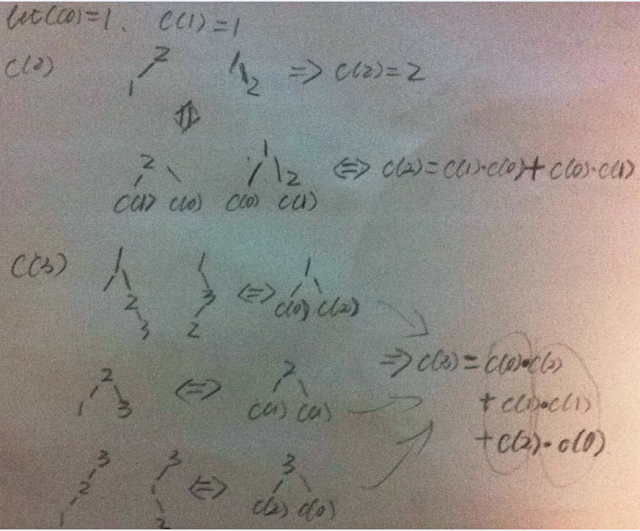 let C(0)=1. C(1)=1
C(2) 2 1 1 2 => C(2)=2
2 1 2 <=> C(2)=C(1)·C(0)+C(0)·C(1)
C(1) C(0) C(0) C(1)
C(3) 1 2 3 1 3 2 <=> 1 C(0) C(2)
=> C(3)=C(0)·C(2)
2 1 3 <=> 2 C(1) C(1)
+C(1)·C(1)
+C(2)·C(0)
3 2 1 3 1 2 <=> 3 C(2) C(0)